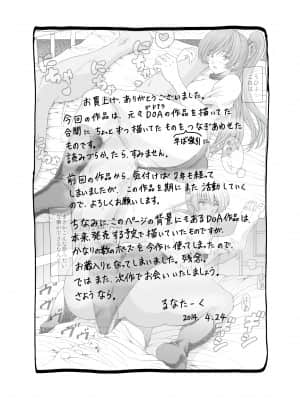 お買上げ、ありがとうございました。
今回の作品は、元々DOAの作品を描いてた
合間に ちょっとずつ描いてたものをつなぎあわせた
半ば強引に
ものです。
読みづらかったら、すみません。
前回の作品から、気付けば2年も経って
しまいましたが、この作品を期にまた活動していく
ので、よろしくお願いします。
ちなみに、このページの背景にもあるDOA作品は、
本来発売する予定で描いていたものですが、
かなりの数のポーズを今作に使ってしまったので、
お蔵入りとなってしまいました。
ではまた、次作でお会いいたしましょう。
さようなら。
るなたーく
2014. 4.24.